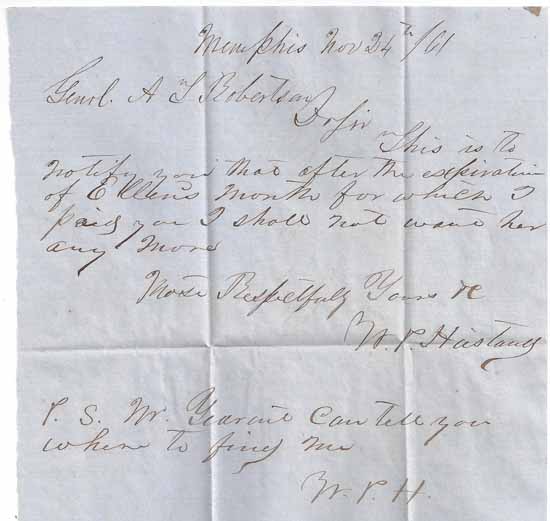 Memphis Nov 24th /61
Genrl. A S Robertson
Dr Sir This is to
notify you that after the expiration
of Ellens month for which I
paid you I shall not want her
any more
Most Respetfully Yours &c
W. P.
P. S. Mr. can tell you
where to find me
W. P. H.